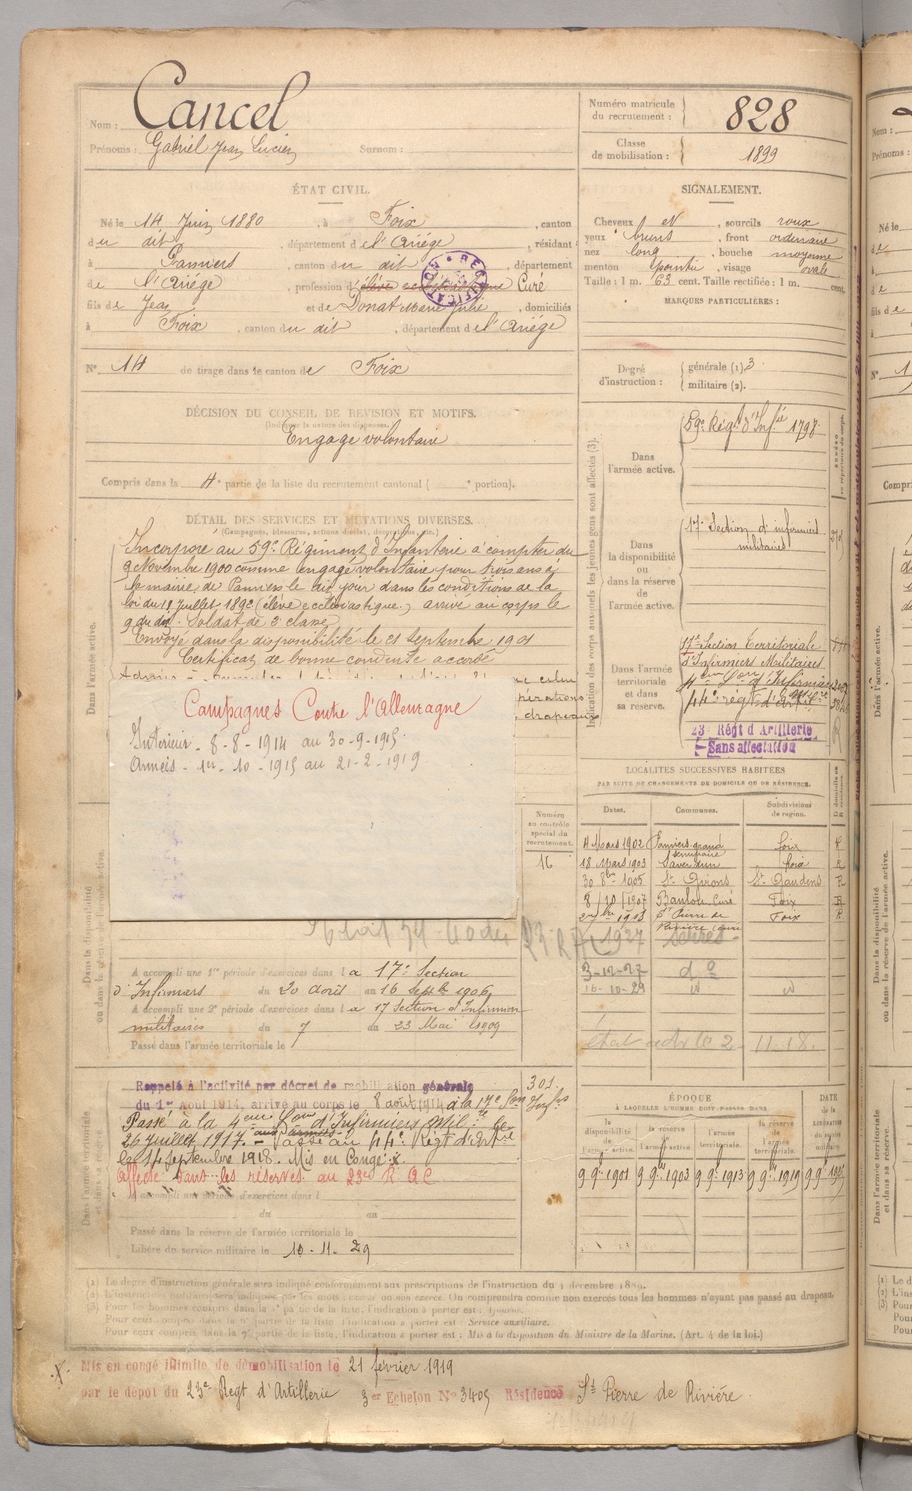 Nom : Cancel
Prénoms : Gabriel Jean Lucien Surnom :
Numéro matricule du recrutement : 828
Classe de mobilisation : 1899
ÉTAT CIVIL.
Né le 14 Juin 1880, à Foix, canton
du dit, département de l'Ariège, résidant
à Pamiers, canton du dit, département
de l'Ariège, profession d'élève ecclésiastique Curé
RECTIFICATION
fils de Jean et de Donat Marie Julie, domiciliés
à Foix, canton du dit, département de l'Ariège
N° 14 de tirage dans le canton de Foix
SIGNALEMENT.
Cheveux et, sourcils roux
yeux bruns, front ordinaire
nez long, bouche moyenne
menton pointu, visage ovale
Taille : 1 m. 63 cent. Taille rectifiée : 1 m. cent.
MARQUES PARTICULIÈRES :
Degré d'instruction : générale (1) 3
militaire (2).
DÉCISION DU CONSEIL DE REVISION ET MOTIFS.
(Indiquer la nature des dispenses.)
Engagé volontaire
Compris dans la 4e partie de la liste du recrutement cantonal ( e portion).
DÉTAIL DES SERVICES ET MUTATIONS DIVERSES.
(Campagnes, blessures, actions d'éclat, décorations, etc.)
Dans l'armée active.
Incorporé au 59e Régiment d'Infanterie à compter du
9 Novembre 1900 comme engagé volontaire pour trois ans à
la mairie de Pamiers le dit jour dans les conditions de la
loi du 11 Juillet 1892 (élève ecclésiastique) arrivé au corps le
9 du dit. Soldat de 2e classe
Envoyé dans la disponibilité le 21 Septembre 1901
Certificat de bonne conduite accordé
Campagnes Contre l'Allemagne
Intérieur - 8-8-1914 au 30-9-1915
Armées - 1er-10-1915 au 21-2-1919
Numéro au contrôle spécial du recrutement.
16
Dans la disponibilité ou dans la réserve de l'armée active.
A accompli une 1re période d'exercices dans la 17e Section
d'Infirmiers du 20 avril au 16 Septbre 1906
A accompli une 2e période d'exercices dans la 17 Section d'Infirmiers
militaires du 7 au 23 Mai 1909
Passé dans l'armée territoriale le
Dans l'armée territoriale et dans sa réserve.
Rappelé à l'activité par décret de mobilisation générale
du 1er Aout 1914, arrivé au corps le 8 août 1914 à la 17e Son Infrs
301
Passé à la 4eme Son d'Infirmiers Milres le
26 Juillet 1917. - Passé au 44e Régt d'Infrie
le 14 Septembre 1918. Mis en Congé X
Affecté dans les réserves au 23e R A C
A accompli une période d'exercices dans l
du au
Passé dans la réserve de l'armée territoriale le
Libéré du service militaire le 10-11-29
Indication des corps auxquels les jeunes gens sont affectés (3).
Dans l'armée active.
59e Régt d'Infie 1798
Dans la disponibilité ou dans la réserve de l'armée active.
17e Section d'infirmiers
militaires
Dans l'armée territoriale et dans sa réserve.
17e Section Territoriale
d'Infirmiers Militaires
4eme Son d'Infirmiers
44e régt d'Infrie
23e Régt d'Artillerie
Sans affectation
LOCALITÉS SUCCESSIVES HABITÉES
PAR SUITE DE CHANGEMENTS DE DOMICILE OU DE RÉSIDENCE.
Dates. Communes. Subdivisions de région.
4 Mars 1902 Pamiers grand séminaire Foix R
18 Mars 1903 Saverdun Foix R
30 8bre 1905 St Girons St Gaudens R
8/10/1907 Baulou Curé Foix R
1913 St Pierre de Rivière Curé Foix R
1927 Serres
3-12-27 do
16-10-29 id id
ÉPOQUE
À LAQUELLE L'HOMME DOIT PASSER DANS
la disponibilité de l'armée active. la réserve de l'armée active. l'armée territoriale. la réserve de l'armée territoriale. DATE de la LIBÉRATION du service militaire.
9 9bre 1901 9 9bre 1903 9 9bre 1913 9 9bre 1919
(1) Le degré d'instruction générale sera indiqué conformément aux prescriptions de l'instruction du 4 décembre 1889.
(2) L'instruction militaire sera indiquée par les mots : exercé ou non exercé. On comprendra comme non exercés tous les hommes n'ayant pas passé au drapeau.
(3) Pour les hommes compris dans la 1re partie de la liste, l'indication à porter est : Ajourné.
Pour ceux compris dans la 6e partie de la liste, l'indication à porter est : Service auxiliaire.
Pour ceux compris dans la 7e partie de la liste, l'indication à porter est : Mis à la disposition du Ministre de la Marine. (Art. 4 de la loi.)
X Mis en congé illimité de démobilisation le 21 février 1919
par le dépôt du 23e Regt d'Artillerie 3er Echelon N° 3405 Résidence St Pierre de Rivière.